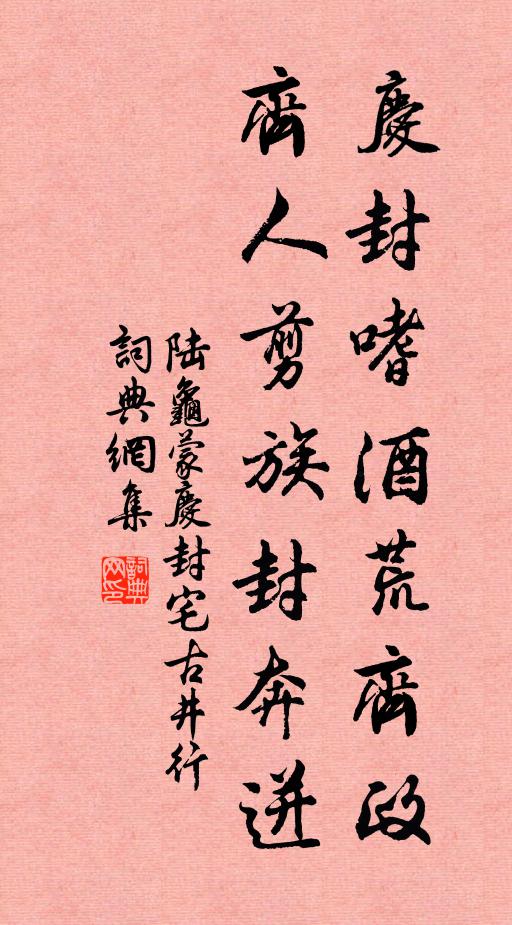 慶封嗜酒荒齊政
齊人剪族封奔迸
陸龜蒙慶封宅古井行
詞典網集
詞典網印